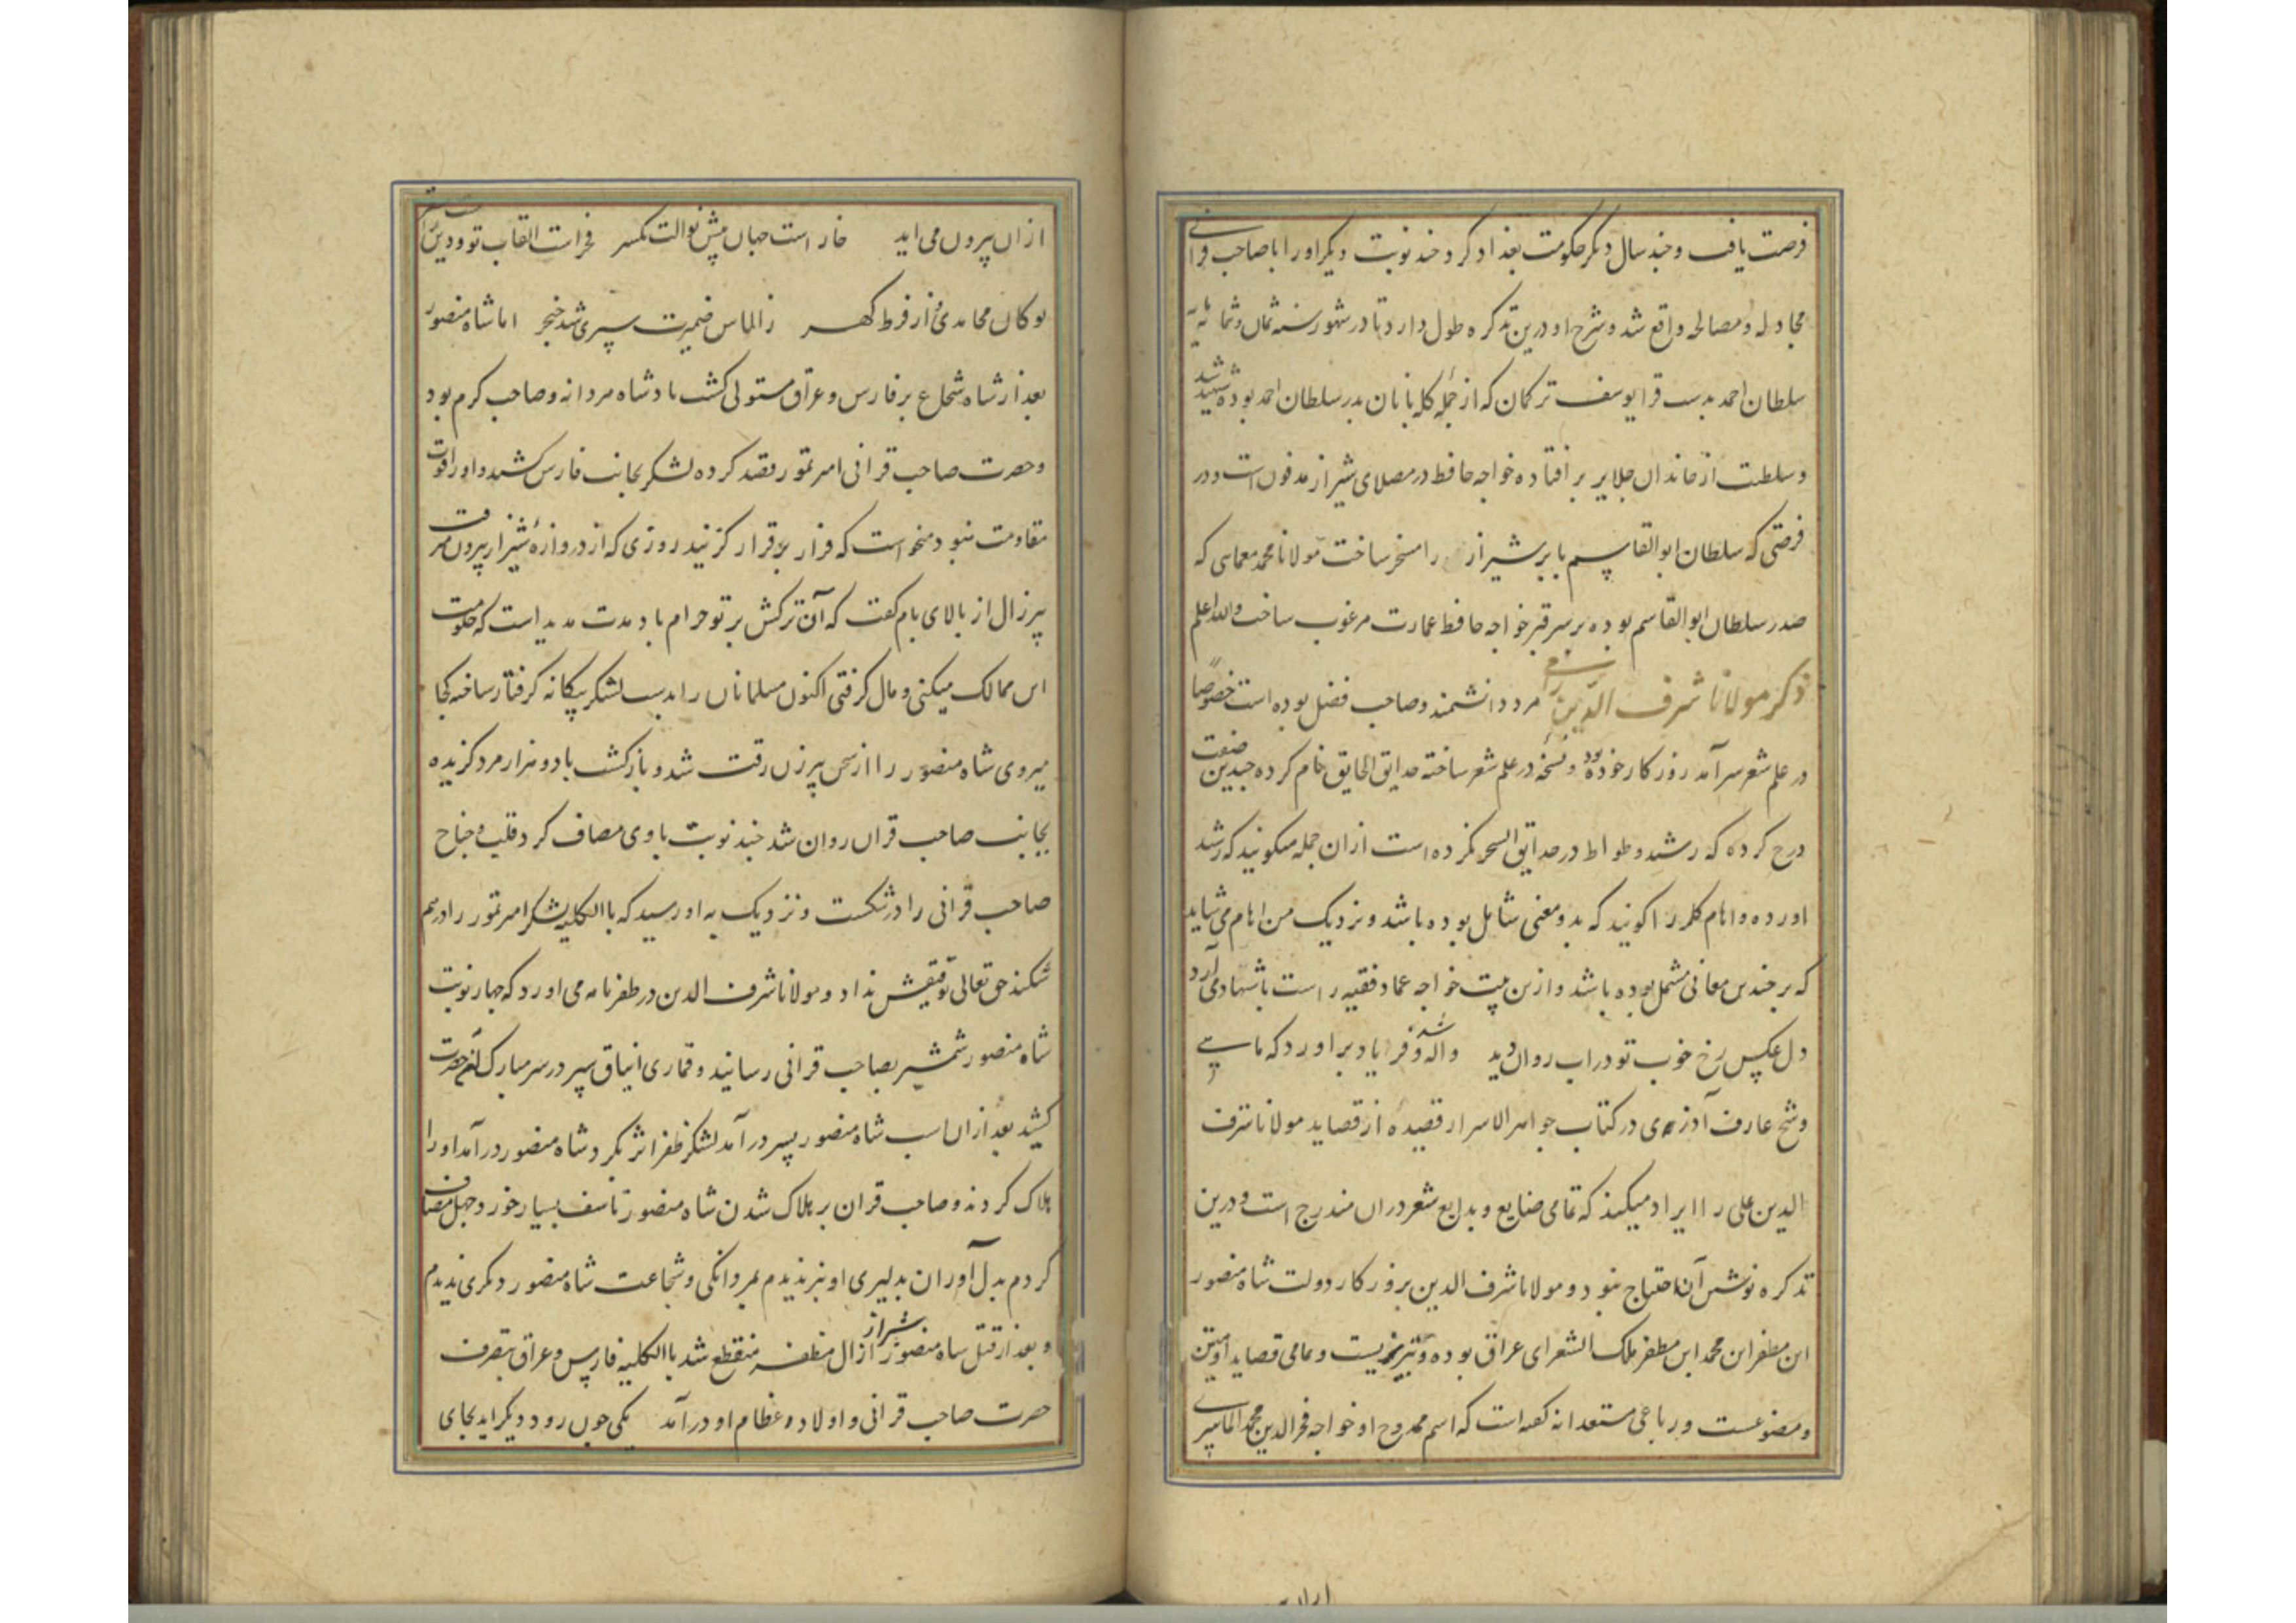 فرصت یافت و چند سال دیگر حکومت بغداد کرد و چند نوبت دیگر او را با صاحب قرانی
مجادله و مصالحه واقع شد و شرح او درین تذکره طول دارد تا در شهور سنه ثمان و ثمانمایه
سلطان احمد بدست قرا یوسف ترکمان که از جمله گله بانان پدر سلطان احمد بوده شهید شد
و سلطنت از خاندان جلایر بر افتاده خواجه حافظ در مصلای شیراز مدفون است و در
فرصتی که سلطان ابوالقاسم بابر شیراز را مسخر ساخت مولانا محمد معمایی که
صدر سلطان ابوالقاسم بوده بر سر قبر خواجه حافظ عمارت مرغوب ساخت والله اعلم
ذکر مولانا شرف الدین رامی مرد دانشمند و صاحب فضل بوده است خصوصاً
در علم شعر سرآمد روزکار خود بود و نسخه در علم شعر ساخته حدایق الحقایق نام کرده چندین صنعت
درج کرده که رشید وطواط در حدایق السحر نکرده است ازان جمله میکوید که رشید
اورده و ایهام کلمه را کویند که بدو معنی شامل بوده باشد و نزدیک من ایهام می شاید
که بر چندین معانی مشتمل بوده باشد و ازین بیت خواجه عماد فقیه راست باشهاد می آرد
دل عکس رخ خوب تو در اب روان دید واله شد و فریاد برآورد که ماهی
و شیخ عارف آذری در کتاب جواهر الاسرار قصیدهٔ از قصاید مولانا شرف
الدین علی را ایراد میکند که تمامی صنایع و بدایع شعر دران مندرج است و درین
تذکره نوشتن آن احتیاج نبود و مولانا شرف الدین بروزکار دولت شاه منصور
ابن مظفر ابن محمد ابن مظفر ملک الشعرای عراق بوده و تبریزیست و تمامی قصاید او متین
و مصنوعست و رباعی مستعدانه گفته است که اسم ممدوح او خواجه فخرالدین محمد الماسیری
ازان بیرون می اید خار است جهان پیش نوالت یکسر فخرات القاب تو و دین را
تو کان محامدی و از فرط کهر زالماس ضمیرت سپری شد خنجر اما شاه منصور
بعد از شاه شجاع بر فارس و عراق مستولی کشت پادشاه مردانه و صاحب کرم بود
و حضرت صاحب قرانی امیر تمور قصد کرده لشکر بجانب فارس کشید و او را قوت
مقاومت نبود میخواست که فرار بر قرار کزیند روزی که از دروازهٔ شیراز بیرون میرفت
پیرزال از بالای بام کفت که آن ترکش بر تو حرام باد مدت مدید است که حکومت
این ممالک میکنی و مال کرفتی اکنون مسلمانان را بدست لشکر بیکانه کرفتار ساخته کجا
میروی شاه منصور را از سخن پیرزن رقت شد و بازکشت با دو هزار مرد کزیده
بجانب صاحب قران روان شد چند نوبت با وی مصاف کرد قلب و جناح
صاحب قرانی را در شکست و نزدیک به او رسید که با الکلیه لشکر امیر تمور را درهم
شکند حق تعالی توفیقش نداد و مولانا شرف الدین در ظفرنامه می اورد که چهار نوبت
شاه منصور شمشیر بصاحب قرانی رسانید و قماری ایناق سپر در سر مبارک آنحضرت
کشید بعد ازان اسب شاه منصور بسر درآمد لشکر ظفر اثر بکرد شاه منصور درآمد او را
هلاک کردند و صاحب قران بر هلاک شدن شاه منصور تاسف بسیار خورد و چهل مصاف
کردم بدل آوران بدلیری او نیز ندیدم بمردانکی و شجاعت شاه منصور دیکری ندیدم
و بعد از قتل شاه منصور شیراز از ال مظفر منقطع شد با الکلیه فارس و عراق بتصرف
حضرت صاحب قرانی و اولاده عظام او درآمد یکی چون رود دیکر اید بجای